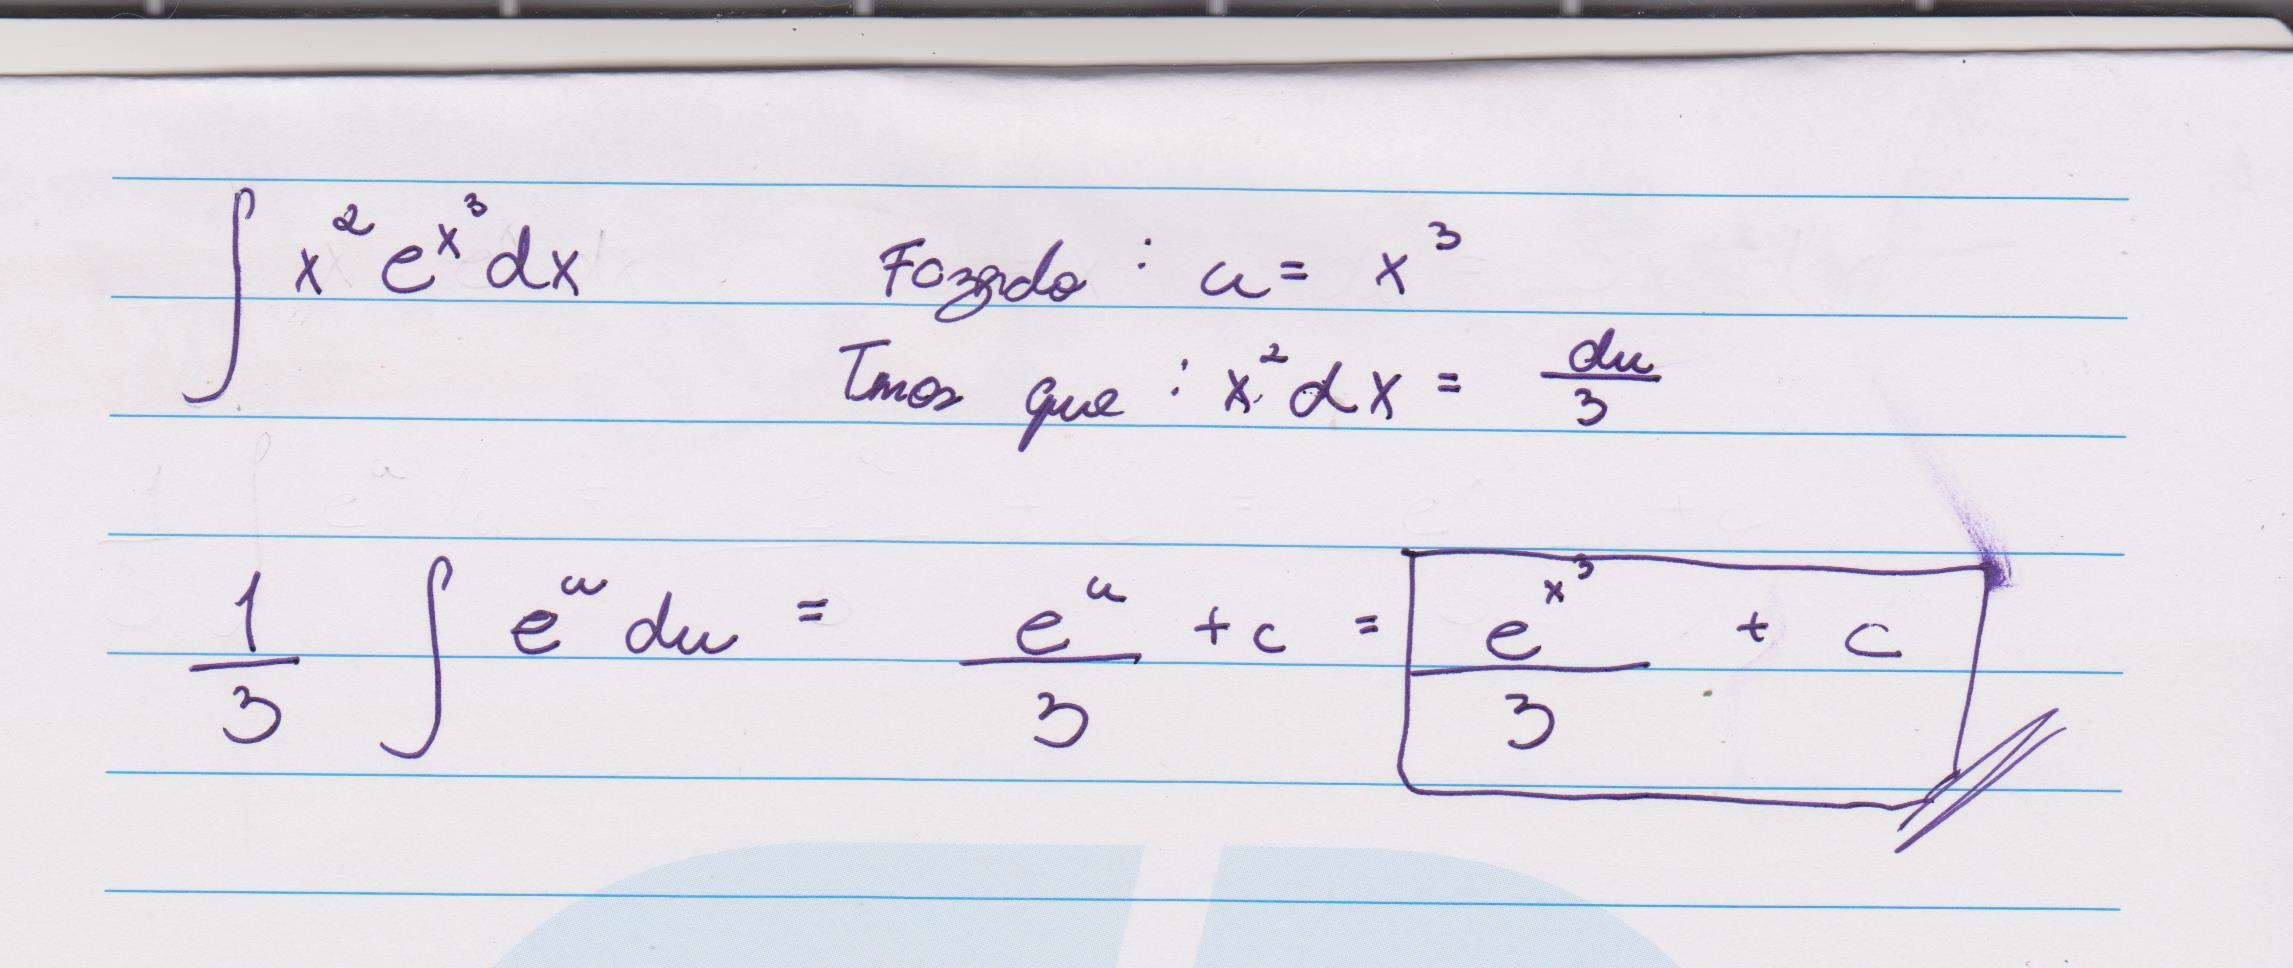 ∫ x² e^{x³} dx Fazendo : u = x³
Temos que : x² dx = du/3
1/3 ∫ e^u du = e^u/3 + c = e^{x³}/3 + c